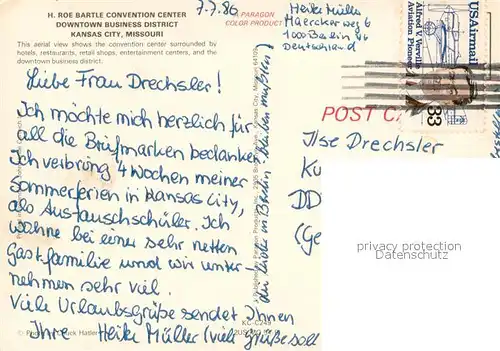 H. ROE BARTLE CONVENTION CENTER
DOWNTOWN BUSINESS DISTRICT
KANSAS CITY, MISSOURI
This aerial view shows the convention center surrounded by
hotels, restaurants, retail shops, entertainment centers, and the
downtown business district.
7.7.86
PARAGON
COLOR PRODUCT
Heike Müller
Maercker weg 6
1000 Berlin 46
Deutschland
USAirmail
Alfred V. Verville
Aviation Pioneer
33
POST CA
Liebe Frau Drechsler!
Ich möchte mich herzlich für
all die Briefmarken bedanken.
Ich verbring 4 Wochen meiner
Sommerferien in Kansas City,
als Austauschschüler. Ich
wohne bei einer sehr netten
Gastfamilie und wir unter-
nehmen sehr viel.
Viele Urlaubsgrüße sendet Ihnen
Ihre Heike Müller (viele Grüße soll
in Berlin
Ilse Drechsler
Ku
DD
(Ge
privacy protection
oldthing.de
KC-C249